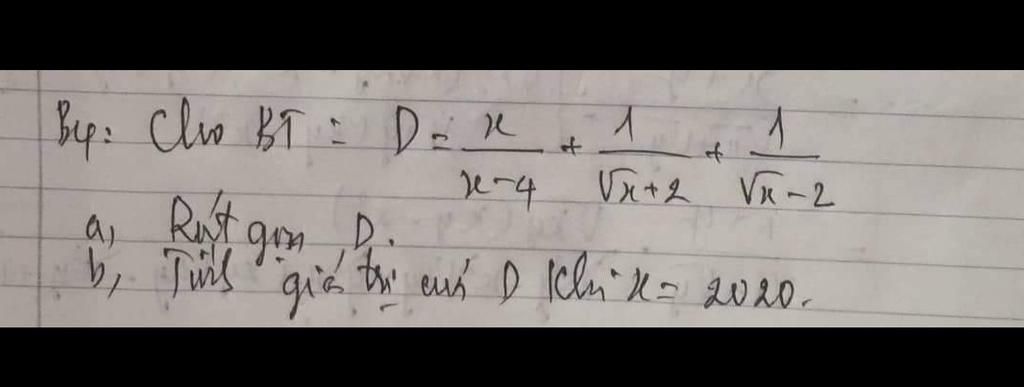 B4: Cho BT: D = x/(x-4) + 1/(√x+2) + 1/(√x-2)
a, Rút gọn D.
b, Tính giá trị của D khi x = 2020.